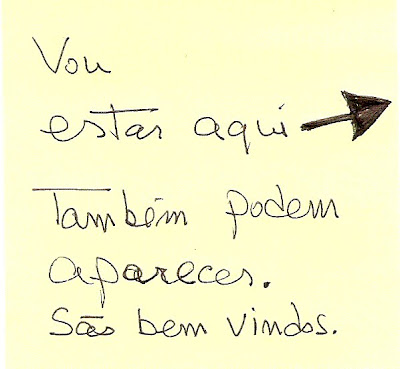 Vou
estar aqui
Também podem
aparecer.
São bem vindos.